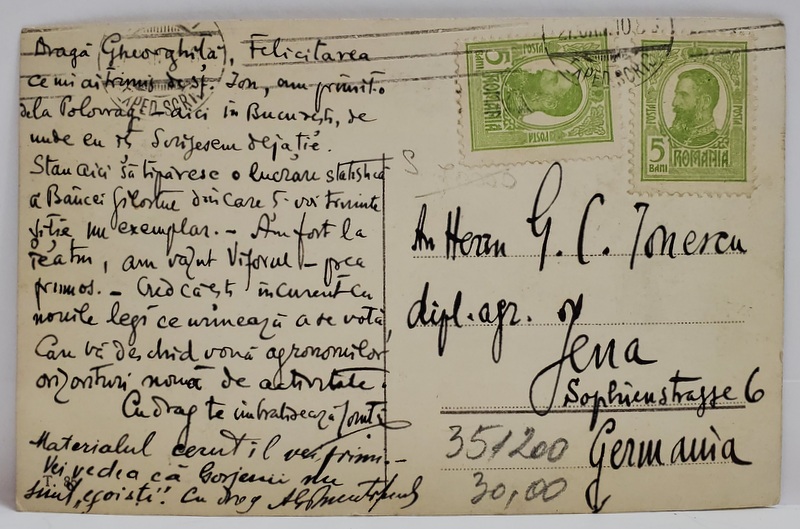 Dragă Gheorghiță, Felicitarea
ce mi ai trimis de sf. Ion, am primit-o
dela Polovragi - aici în București, de
unde eu îți scrijesem dejà ție.
Stau aici să tipăresc o lucrare statistică
a Băncei Gilortul din care îți voi trimite
și ție un exemplar. - Am fost la
teatru, am văzut Viforul - prea
frumos. - Cred că ești în curent cu
nouile legi ce urmează a se vota,
Care vă deschid vouă agronomilor
orizonturi nouă de activitate.
Cu drag te îmbrățișează
Materialul cerut îl vei primi. -
Vei vedea că Gorjenii nu
sunt „egoiști"! Cu drag
T. 8
POSTA
5
ROMANIA
POSTA
5
BANI
ROMANIA
An Herrn G. C. Ionescu
dipl. agr.
Jena
Sophienstrasse 6
Germania
351200
30,00